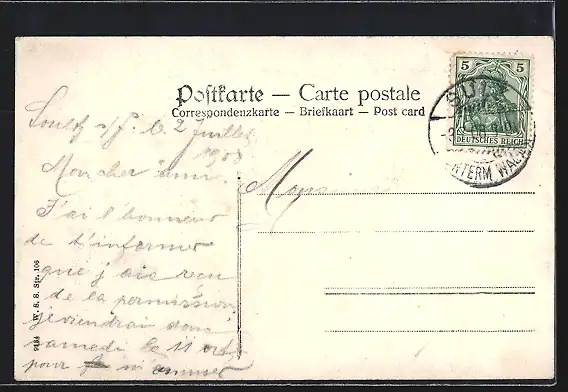 Postkarte — Carte postale
Correspondenzkarte — Briefkaart — Post card
5 5
DEUTSCHES REICH
SULZ
UNTERM WALD
le 2 Juillet
1908
Mon cher ami.
Monsieur
J'ai l'honneur
de t'informer
que j'ais reçu
de la permission
je viendrai donc
samedi le 11
pour m'amuser
9184 W. S. S. Str. 106